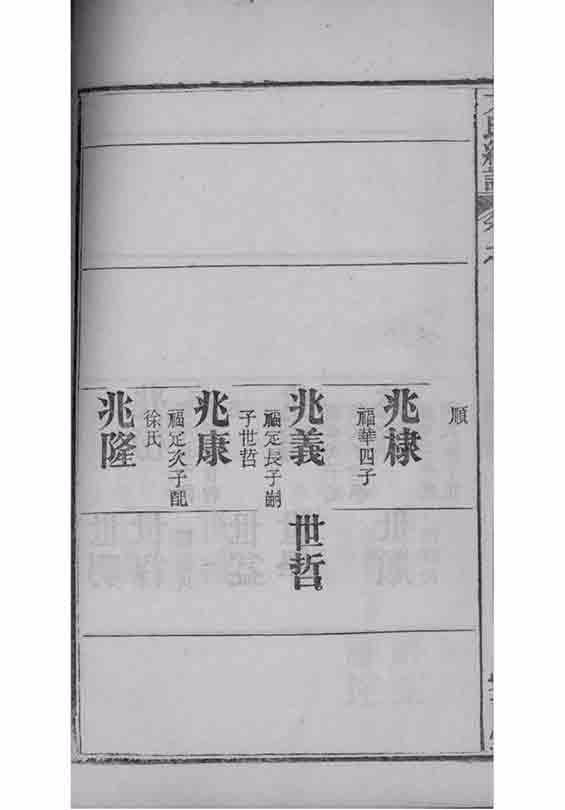 順
兆棣
福華四子
兆義
福延長子嗣
子世哲
世哲
兆康
福延次子配
徐氏
兆隆